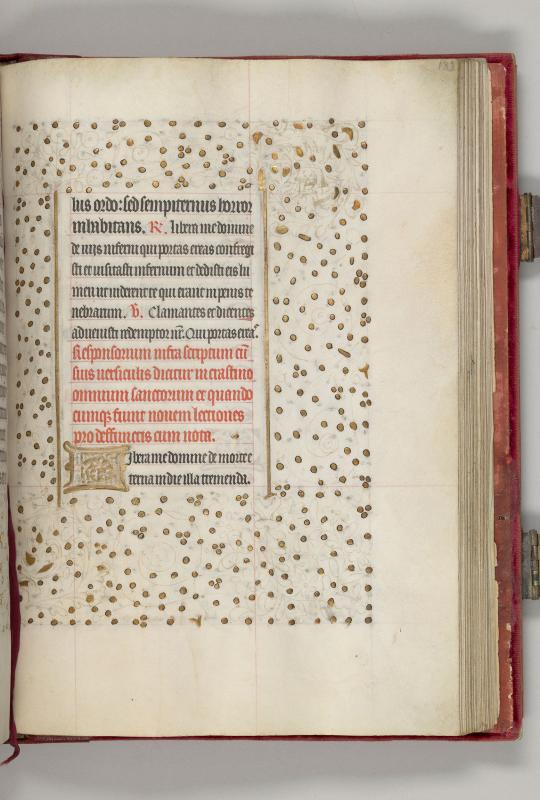 bus ordo: sed sempiternus horror
inhabitans. R. Libera me domine
de viis inferni qui portas ereas confregi
sti et visitasti infernum et dedisti eis lu
men ut viderent te qui erant in penis te
nebrarum. V. Clamantes et dicentes
advenisti redemptor nr̃. Qui portas erea˜.
Responsorium infra scriptum cũ
suis versiculis dicitur in crastino
omnium sanctorum et quando
cumq; fiunt novem lectiones
pro deffunctis cum nota.
Libera me domine de morte e
terna in die illa tremenda.